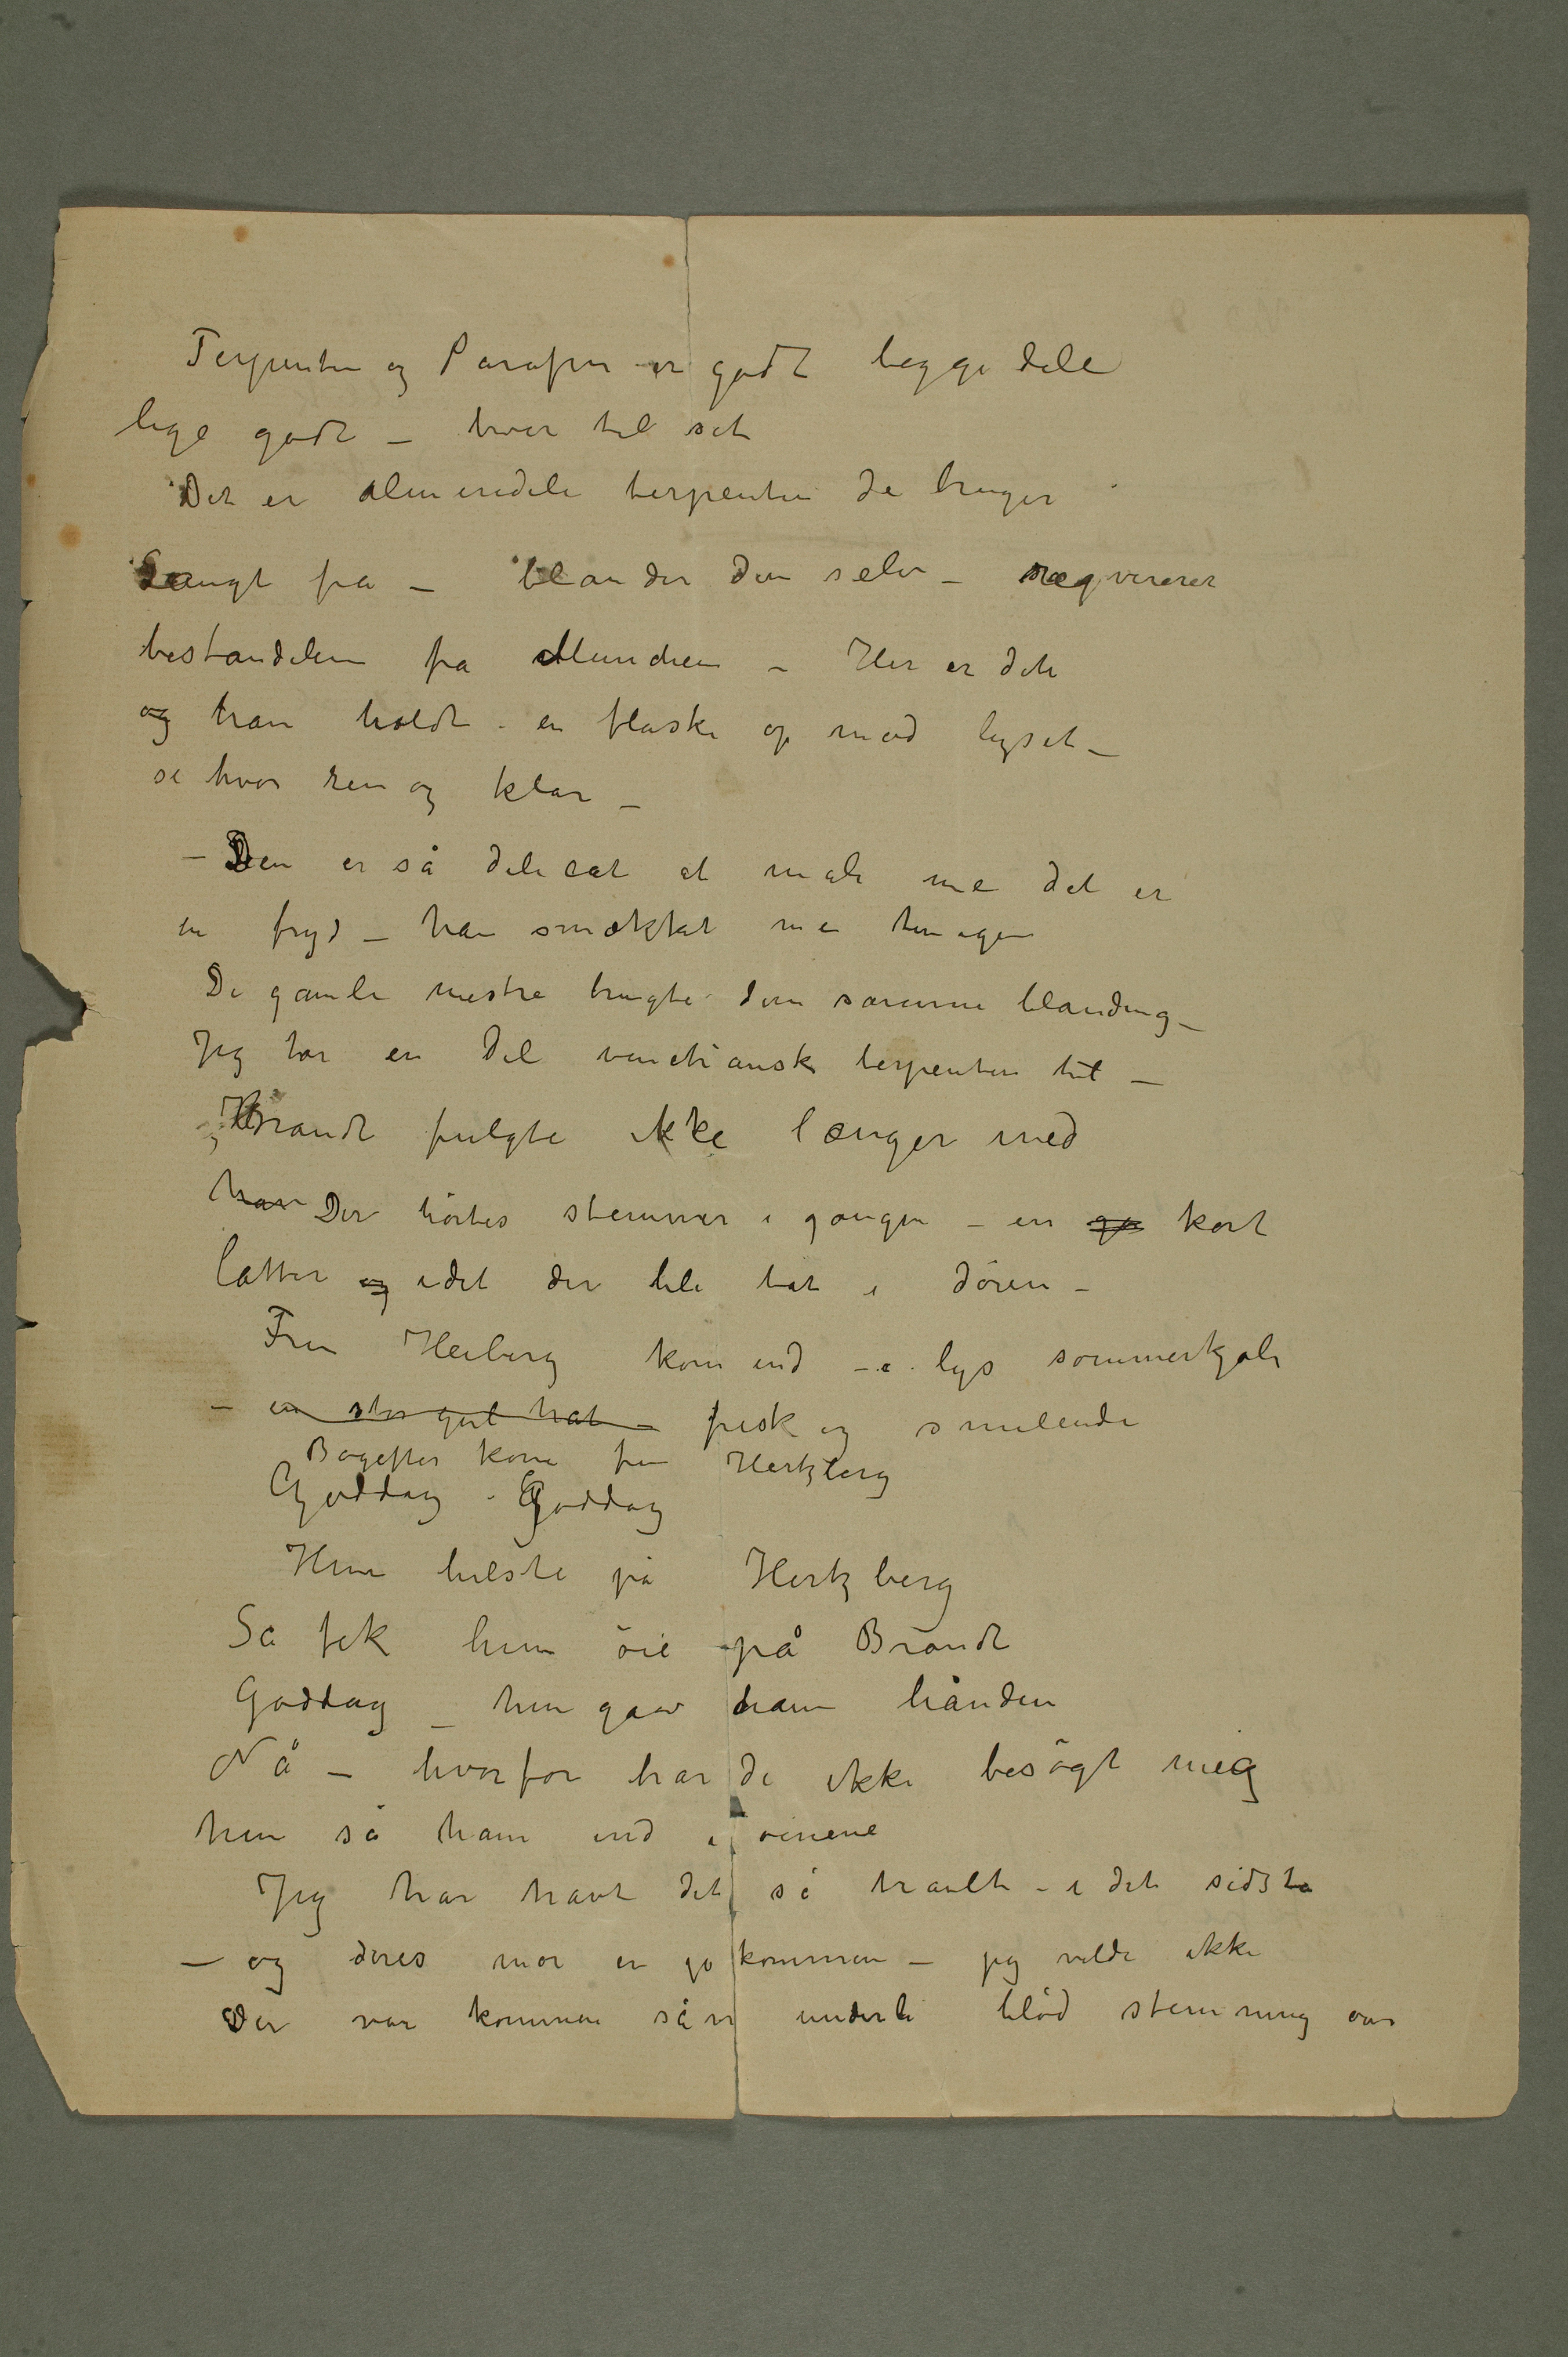 Terpentin og Parafin er godt begge dele
lige godt – hver til sit
Det er almindeli terpentin De bruger
Langt fra – blander den selv – reqvirerer
bestandelen fra Munchen – Her er det
og han holdt en flaske op mod lyset –
se hvor ren og klar –
– Den er så delicat at male me det er
en fryd – han smækket me tungen
De gamle mestre brugte den samme blanding –
Jeg tar en del venetiansk terpentin til –
Brandt fulgte ikke længer med
han Der hørtes stemmer i gangen – en kort
latter og idet der ble tat i døren –
Fru Heiberg kom ind – i lys sommerkjole
– en stor gul hat – frisk og smilende
Bagefter kom fru Hertzberg
Goddag – Goddag
Hun hilste på Hertzberg
Så fik hun øie på Brandt
Goddag – hun gav ham hånden
Nå – hvorfor har De ikke besøgt mig
hun så ham ind i øinene
Jeg har havt det så travlt – i det sidste
– og deres mor er jo kommen – jeg vilde ikke
Der var kommen så'n underli blød stemning over